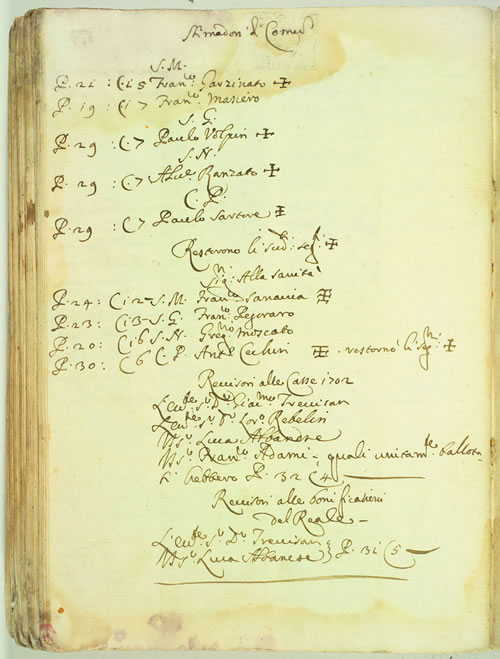 Stimadori di Comun
S. M.
P. 21 : C. 15 Fran.co Garzinato ✠
P. 19 : C. 17 Fran.co Masiero
S. G.
P. 29 : C. 7 Paulo Volpin ✠
S. N.
P. 29 : C. 7 Ranzato ✠
C. P.
P. 29 : C. 7 Paulo Sartore ✠
Restorono li sud.ti seg.ti ✠
Sig.ri Alla sanità
P. 24 : C. 12 - S. M. Fran.co ✠
P. 23 : C. 13 - S. G. Fran.co Pegoraro
P. 20 : C. 16 S. N. Greg.o Moscato
P. 30 : C. 6 C. P. Ant.o Cechin ✠ . restorno li seg.ti ✠
Revisori alle Casse 1702
L'ecc.te S.r D.r Giac.mo Trevisan
L'ecc.te S.r D.r Lor.o Rebelin
Ms.r Luca Albanese
Ms.r Fran.co Adami - quali unitam.te ballota-
ti hebbero P. 32 C. 4
Revisori alle bonificationi
del Reale -
L'ecc.te S.r D.r Trevisan }
Ms.r Luca Albanese } P. 31 C. 5